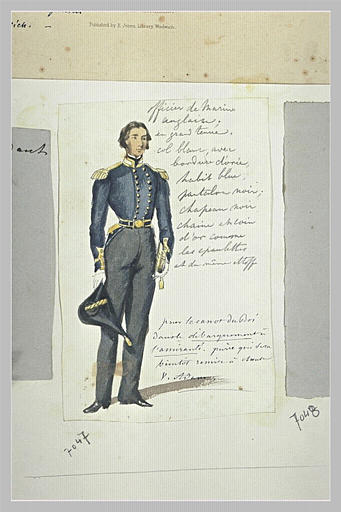 ich. -
Published by E. Jones, Library, Woolwich.
officier de Marine
anglaise.
en grand tenue.
col blanc, avec
bordure d'or
habit bleu,
pantalon noir;
chapeau noir
d'or comme
les épaulettes
et de même étoffe
pour le canot du Roi
dans le débarquement à
l'amirauté. pièce qui sera
bientôt remise à
V. Adam
7047
7048